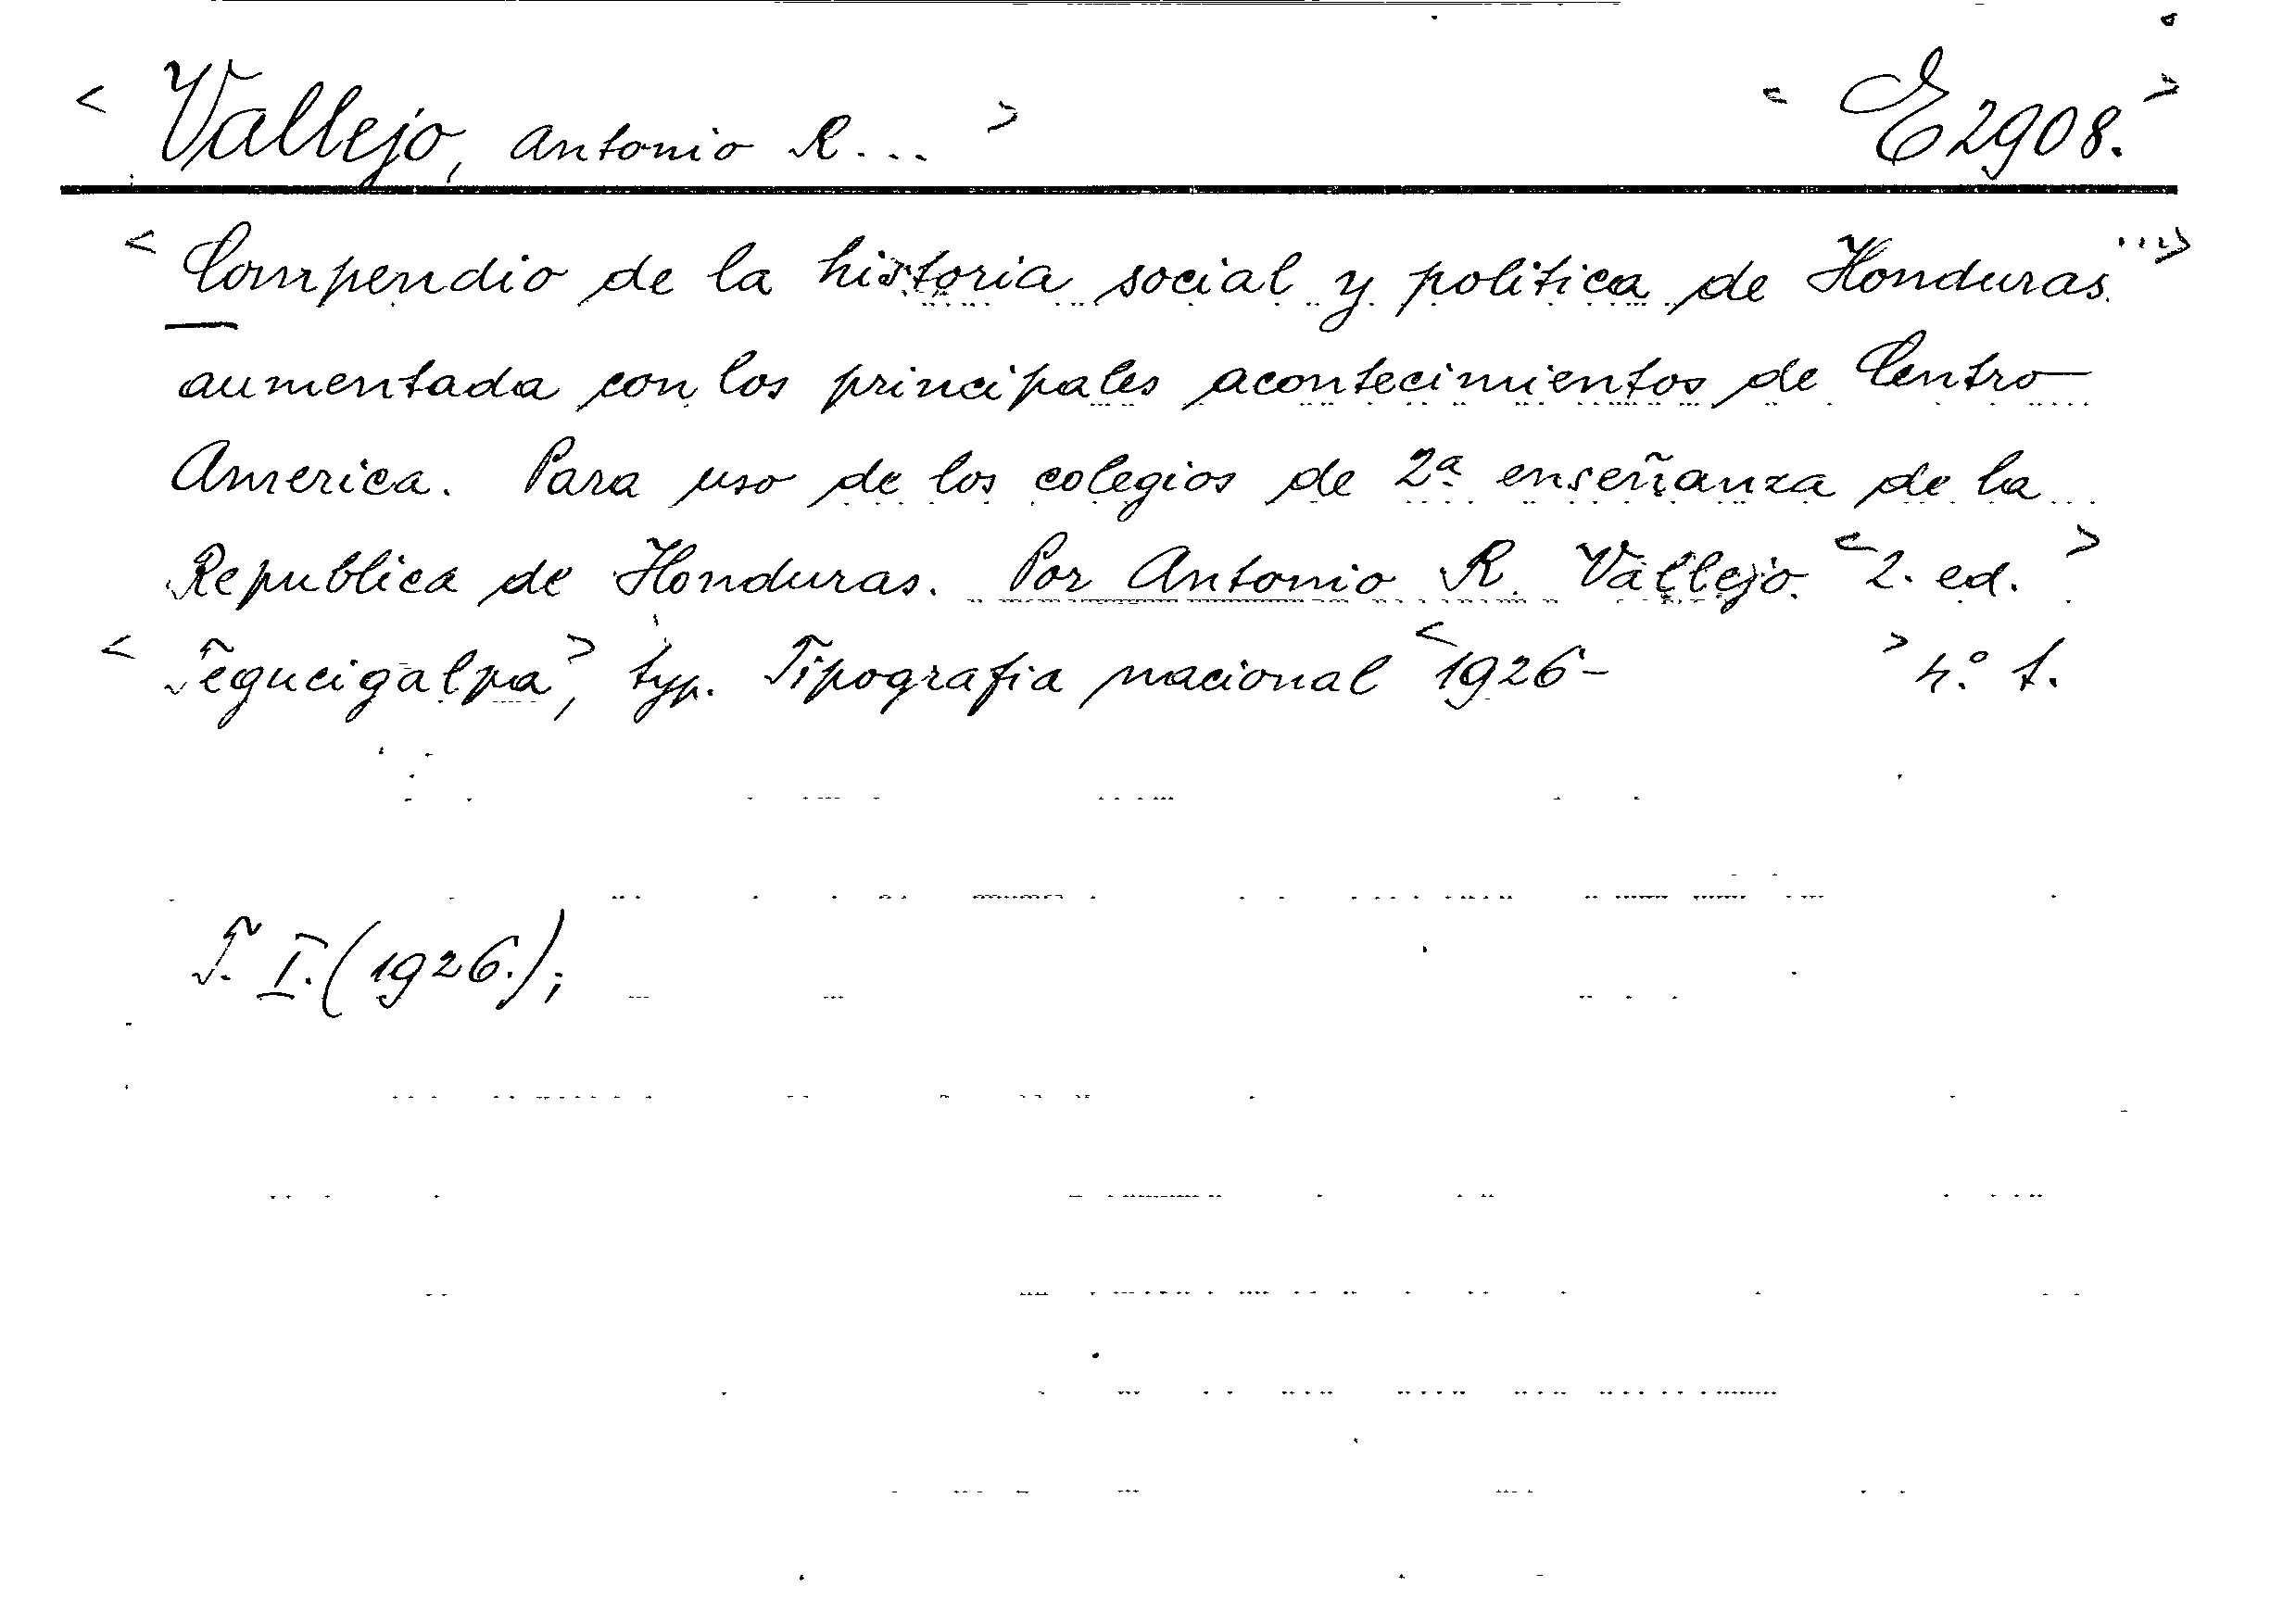 < Vallejo, Antonio R... > < E2908. >
< Compendio de la historia social y politica de Honduras...>
aumentada con los principales acontecimientos de Centro
America. Para uso de los colegios de 2ª enseñanza de la
Republica de Honduras. Por Antonio R. Vallejo. < 2. ed. >
< Tegucigalpa >, typ. Tipografia nacional < 1926- > 4.° t.
T. I. (1926.);